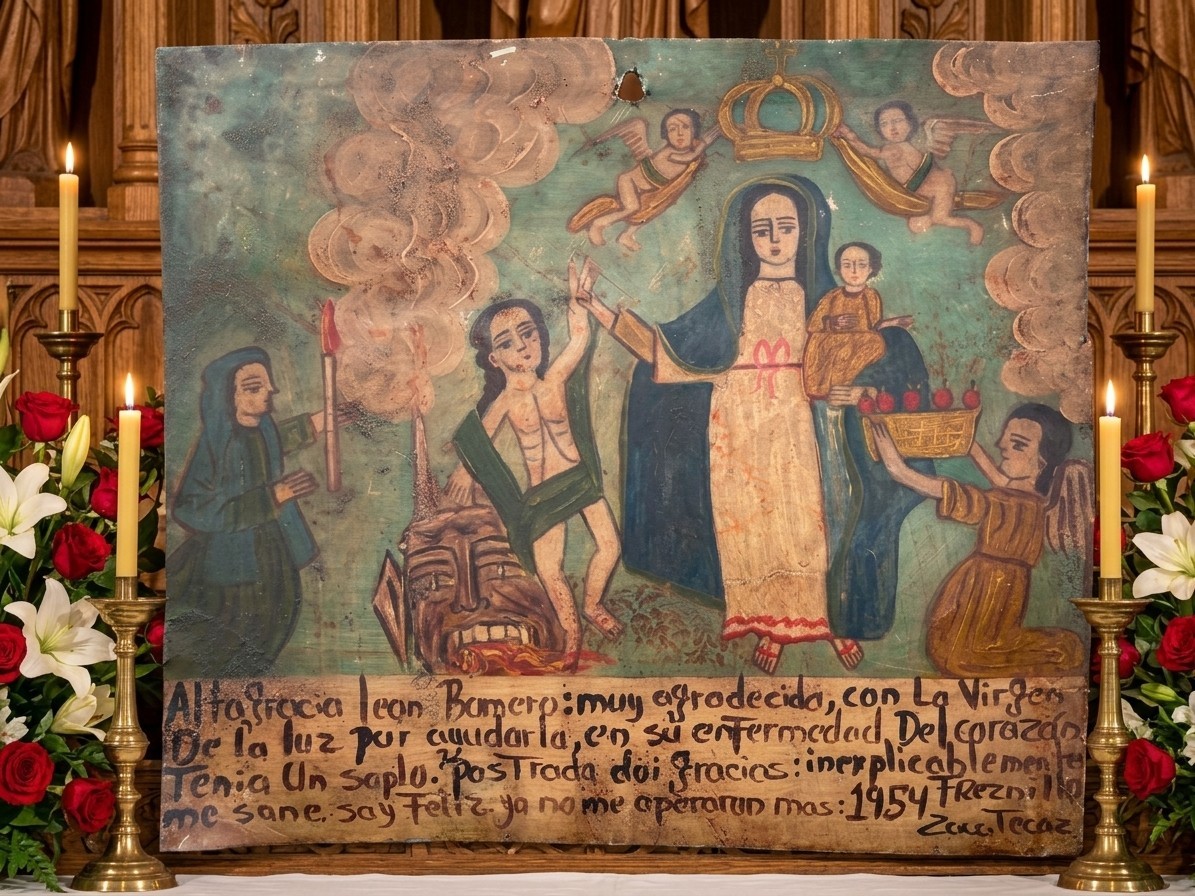 Altagracia leon Bomero: muy agradecida, con La Virgen
De la luz por ayudarla, en su enfermedad Del corazón
Tenia Un soplo. y posTrada doi gracias: inexplicablemente
me sane. soy Feliz ya no me operaran mas: 1954 Freznillo
Zacatecaz